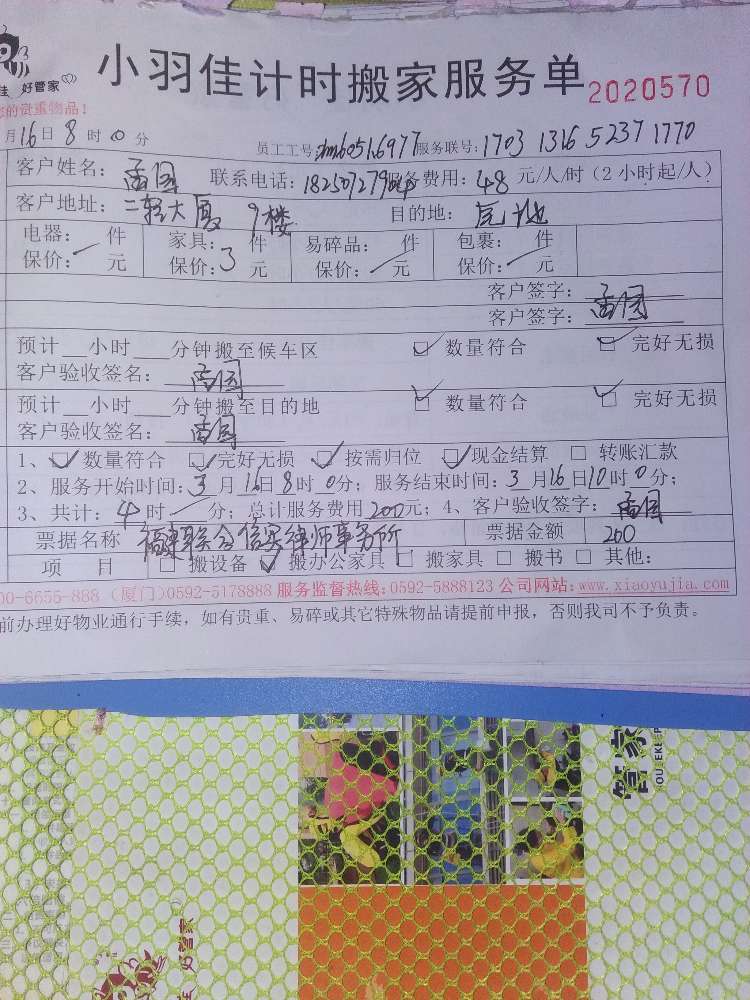 佳 好管家
小羽佳计时搬家服务单 2020570
您的贵重物品！
月16日8时0分 员工工号: 服务联号: 1703 1316 5237 1770
客户姓名： 联系电话: 服务费用：48元/人/时（2小时起/人）
客户地址：二轻大厦 9楼 目的地：
电器： 件 家具： 件 易碎品： 件 包裹： 件
保价： 元 保价：3 元 保价： 元 保价： 元
客户签字：
客户签字：
预计__小时___分钟搬至候车区 ☑ 数量符合 ☑ 完好无损
客户验收签名：
预计__小时___分钟搬至目的地 ☑ 数量符合 ☑ 完好无损
客户验收签名：
1、☑ 数量符合 ☑ 完好无损 ☑ 按需归位 ☑ 现金结算 □ 转账汇款
2、服务开始时间：3月16日8时0分；服务结束时间：3月16日10时0分；
3、共计：4时 分；总计服务费用200元；4、客户验收签字：
票据名称 福建联合信实律师事务所 票据金额 200
项 目 □ 搬设备 ☑ 搬办公家具 □ 搬家具 □ 搬书 □ 其他:
00-6655-888 (厦门)0592-5178888 服务监督热线:0592-5888123 公司网站:www.xiaoyujia.com
前办理好物业通行手续，如有贵重、易碎或其它特殊物品请提前申报，否则我司不予负责。
管家
好管家